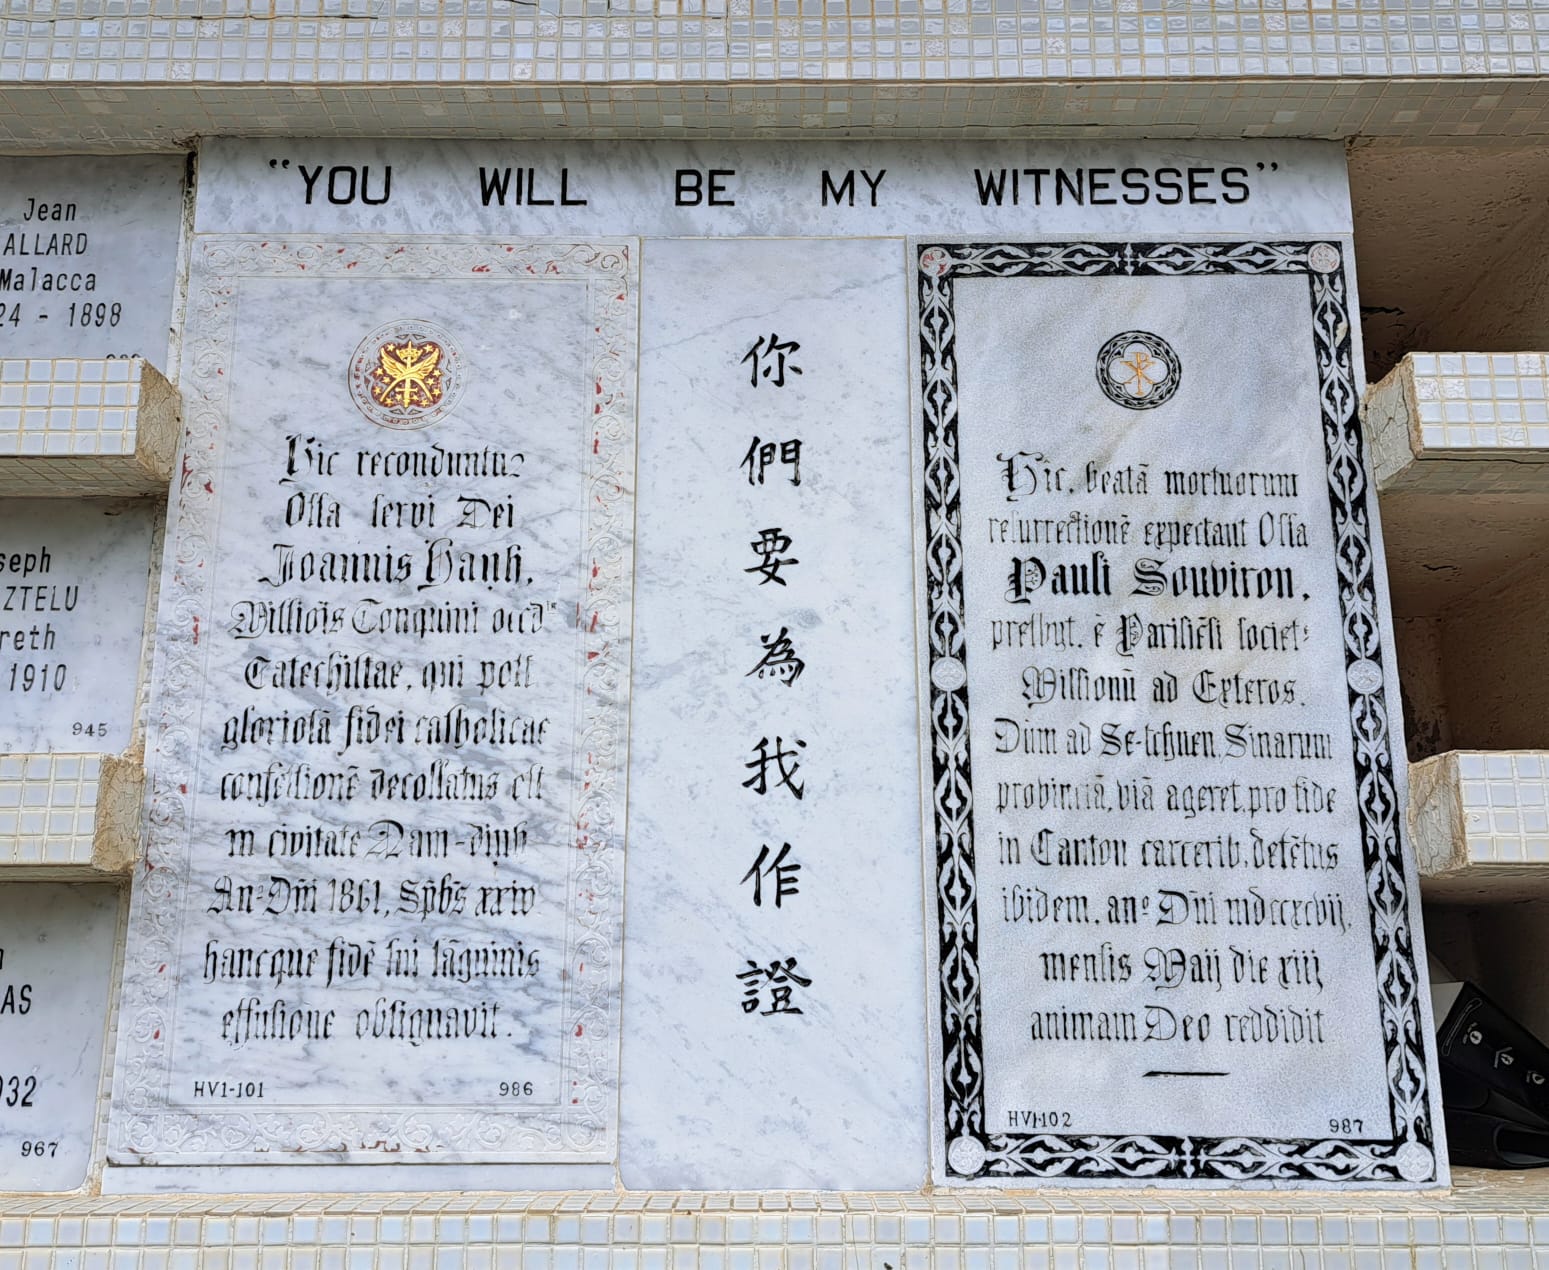 "YOU WILL BE MY WITNESSES"
Jean
ALLARD
Malacca
24 - 1898
seph
ZTELU
reth
1910
945
AS
932
967
Hic reconduntur
Ossa servi Dei
Joannis Hanh,
Missiōis Tonquini occid
Catechistae, qui post
gloriosā fidei catholicae
confessionē decollatus est
in civitate Nam-dinh
Anº Dñi 1861, Spbs xxiv
hancque fidē sui sāguinis
effusione obsignavit.
HV1-101
986
你們要為我作證
Hic, beatā mortuorum
resurrectionē expectant Ossa
Pauli Souviron,
presbyt. ē Parisiēsi societ:
Missionū ad Exteros.
Dum ad Se-tchuen, Sinarum
provinciā, viā ageret, pro fide
in Canton carcerib, detētus
ibidem, anº Dñi mdccxcvij,
mensis Maij die xiij
animam Deo reddidit
HV1-102
987